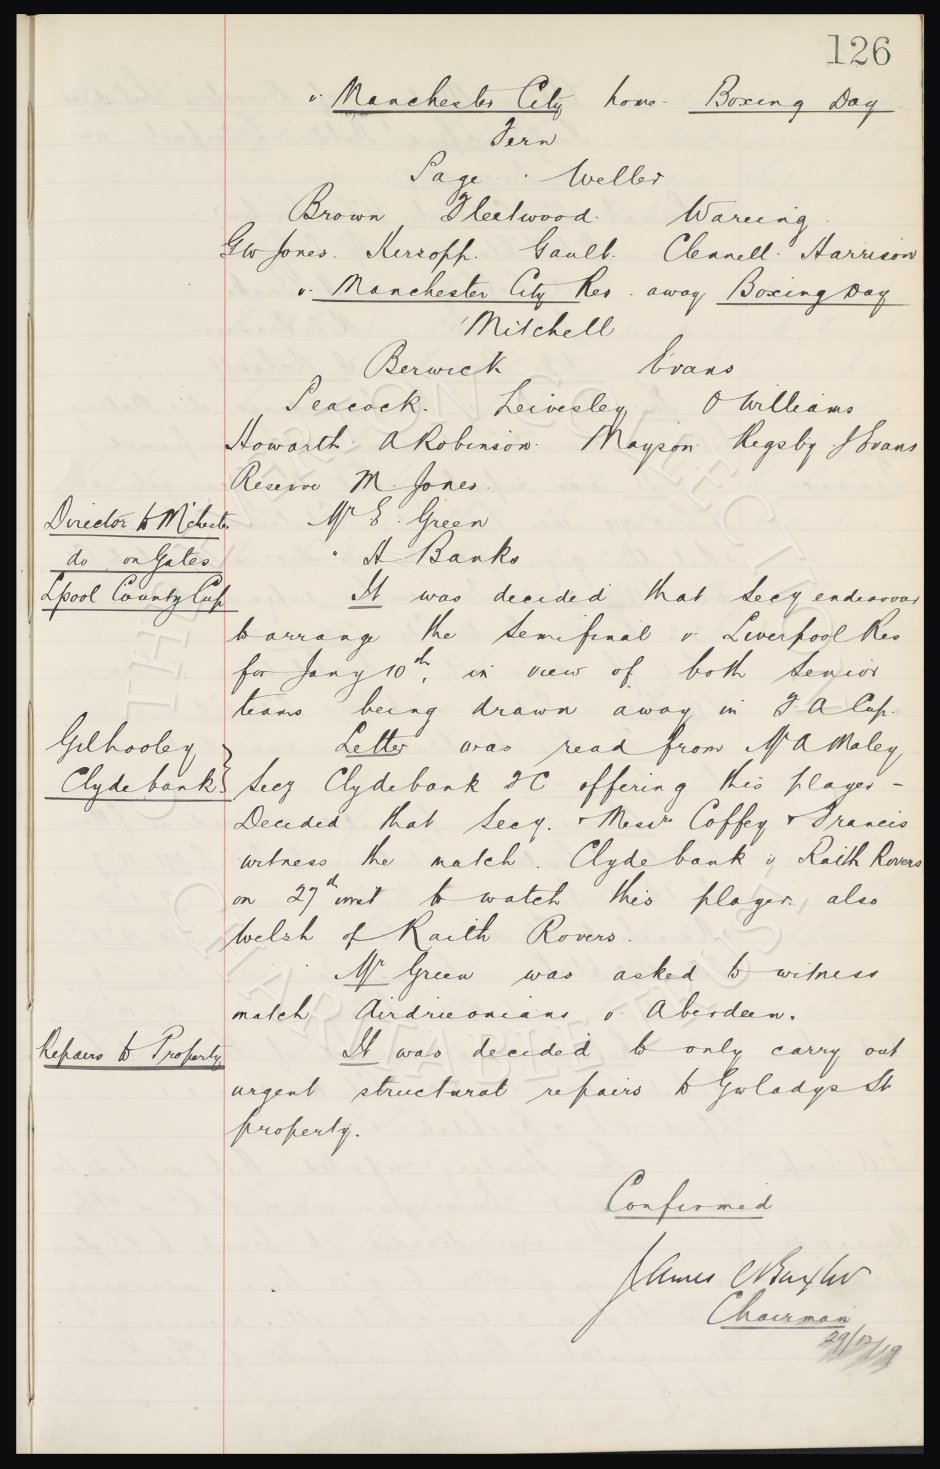 126
v. Manchester City home. Boxing Day
Fern
Page . Weller
Brown Fleetwood. Wareing.
GW Jones. Kirsopp. Gault. Clennell. Harrison
v. Manchester City Res. away Boxing Day
Mitchell
Berwick Evans
Peacock. Leivesley O Williams
Howarth. A Robinson. Mayson Rigsby J Evans
Reserve M. Jones.
Director to M'chester Mr E. Green
do on Gates " A Banks
Lpool County Cup It was decided that Secy endeavour
to arrange the Semifinal v. Liverpool Res
for Jany 10th, in view of both Senior
teams being drawn away in F A Cup.
Gilhooley Letter was read from Mr A Maley
Clydebank Secy Clydebank FC offering this player -
Decided that Secy. + Messrs Coffey + Francis
witness the match. Clydebank v Raith Rovers
on 27th inst to watch this player. also
Welsh of Raith Rovers.
Mr Green was asked to witness
match Airdrieonians v. Aberdeen.
Repairs to Property It was decided to only carry out
urgent structural repairs to Gwladys St
property.
Confirmed
James C Baxter
Chairman
29/12/19